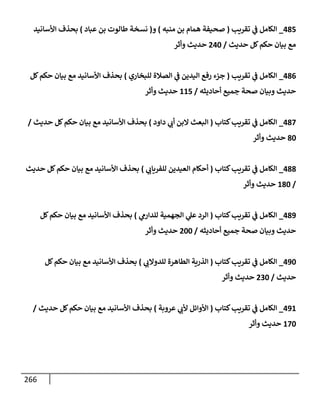 485_ الكامل في تقريب ( صحيفة همام بن منبه ) و( نسخة طالوت بن عباد ) بحذف الأسانيد
مع بيان حكم كل حديث / 240 حديث وأثر
486_ الكامل في تقريب ( جزء رفع اليدين في الصلاة للبخاري ) بحذف الأسانيد مع بيان حكم كل
حديث وبيان صحة جميع أحاديثه / 115 حديث وأثر
487_ الكامل في تقريب كتاب ( البعث لابن أبي داود ) بحذف الأسانيد مع بيان حكم كل حديث /
80 حديث وأثر
488_ الكامل في تقريب كتاب ( أحكام العيدين للفريابي ) بحذف الأسانيد مع بيان حكم كل حديث
/ 180 حديث وأثر
489_ الكامل في تقريب كتاب ( الرد علي الجهمية للدارمي ) بحذف الأسانيد مع بيان حكم كل
حديث وبيان صحة جميع أحاديثه / 200 حديث وأثر
490_ الكامل في تقريب كتاب ( الذرية الطاهرة للدولابي ) بحذف الأسانيد مع بيان حكم كل
حديث / 230 حديث وأثر
491_ الكامل في تقريب كتاب ( الأوائل لأبي عروبة ) بحذف الأسانيد مع بيان حكم كل حديث /
170 حديث وأثر
266